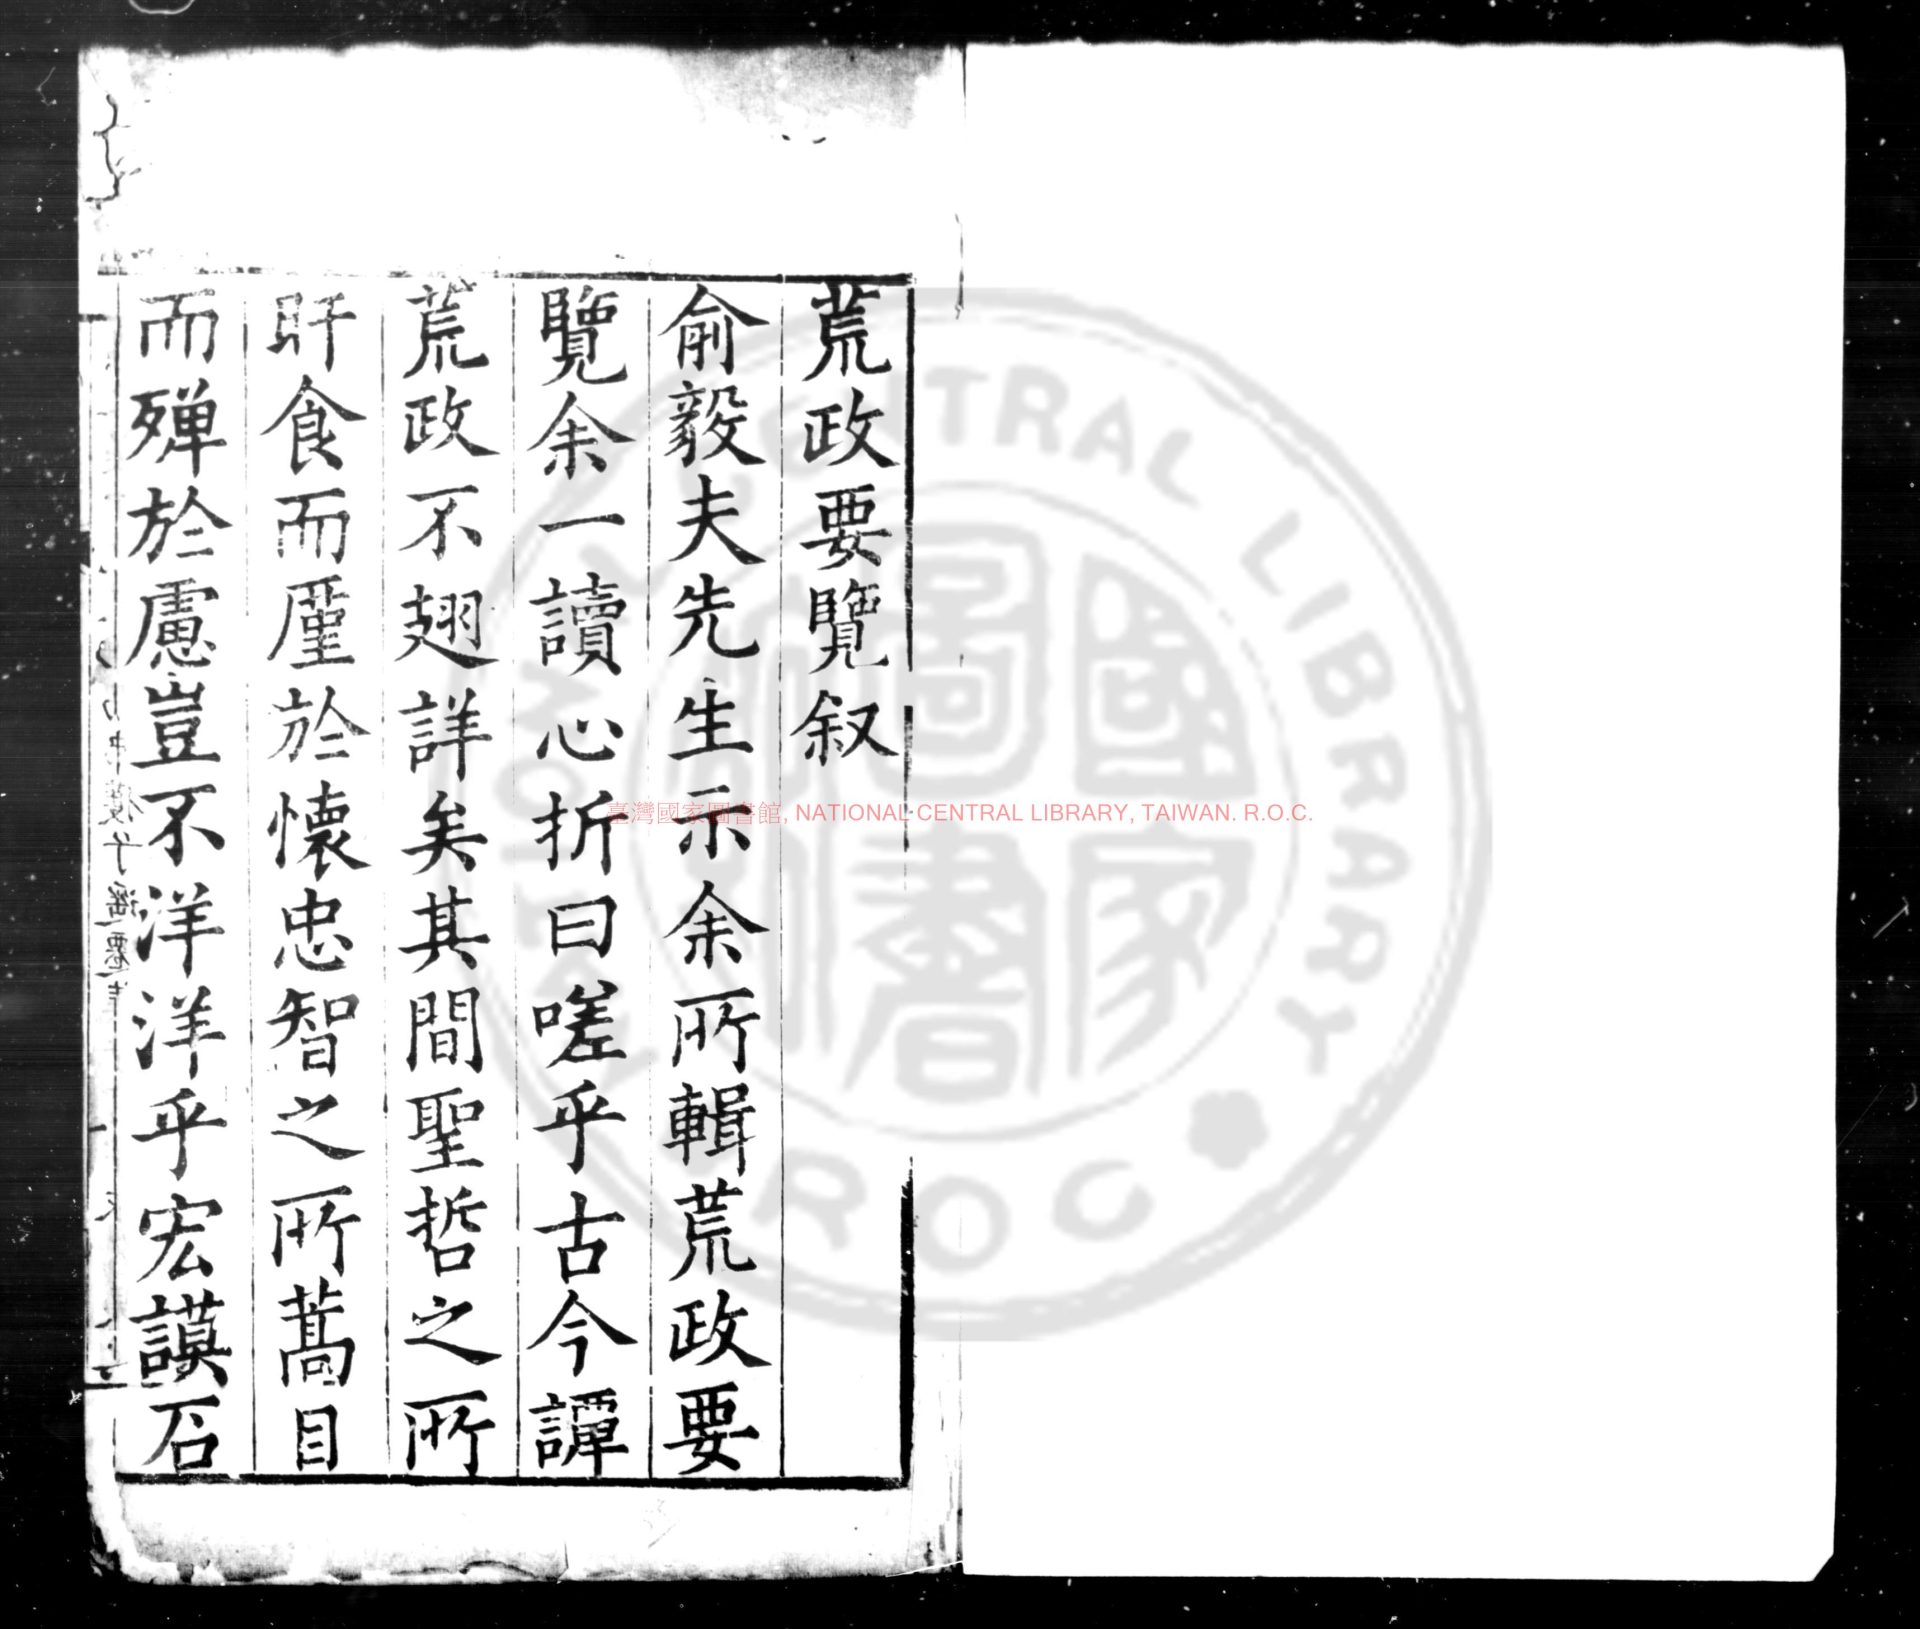 荒政要覽叙
俞毅夫先生示余所輯荒政要
覽余一讀心折曰嗟乎古今譚
荒政不翅詳矣其間聖哲之所
旰食而廑於懷忠智之所蒿目
而殫於慮豈不洋洋乎宏謨石
臺灣國家圖書館, NATIONAL CENTRAL LIBRARY, TAIWAN. R.O.C.
NATIONAL CENTRAL LIBRARY
R.O.C
國家圖書